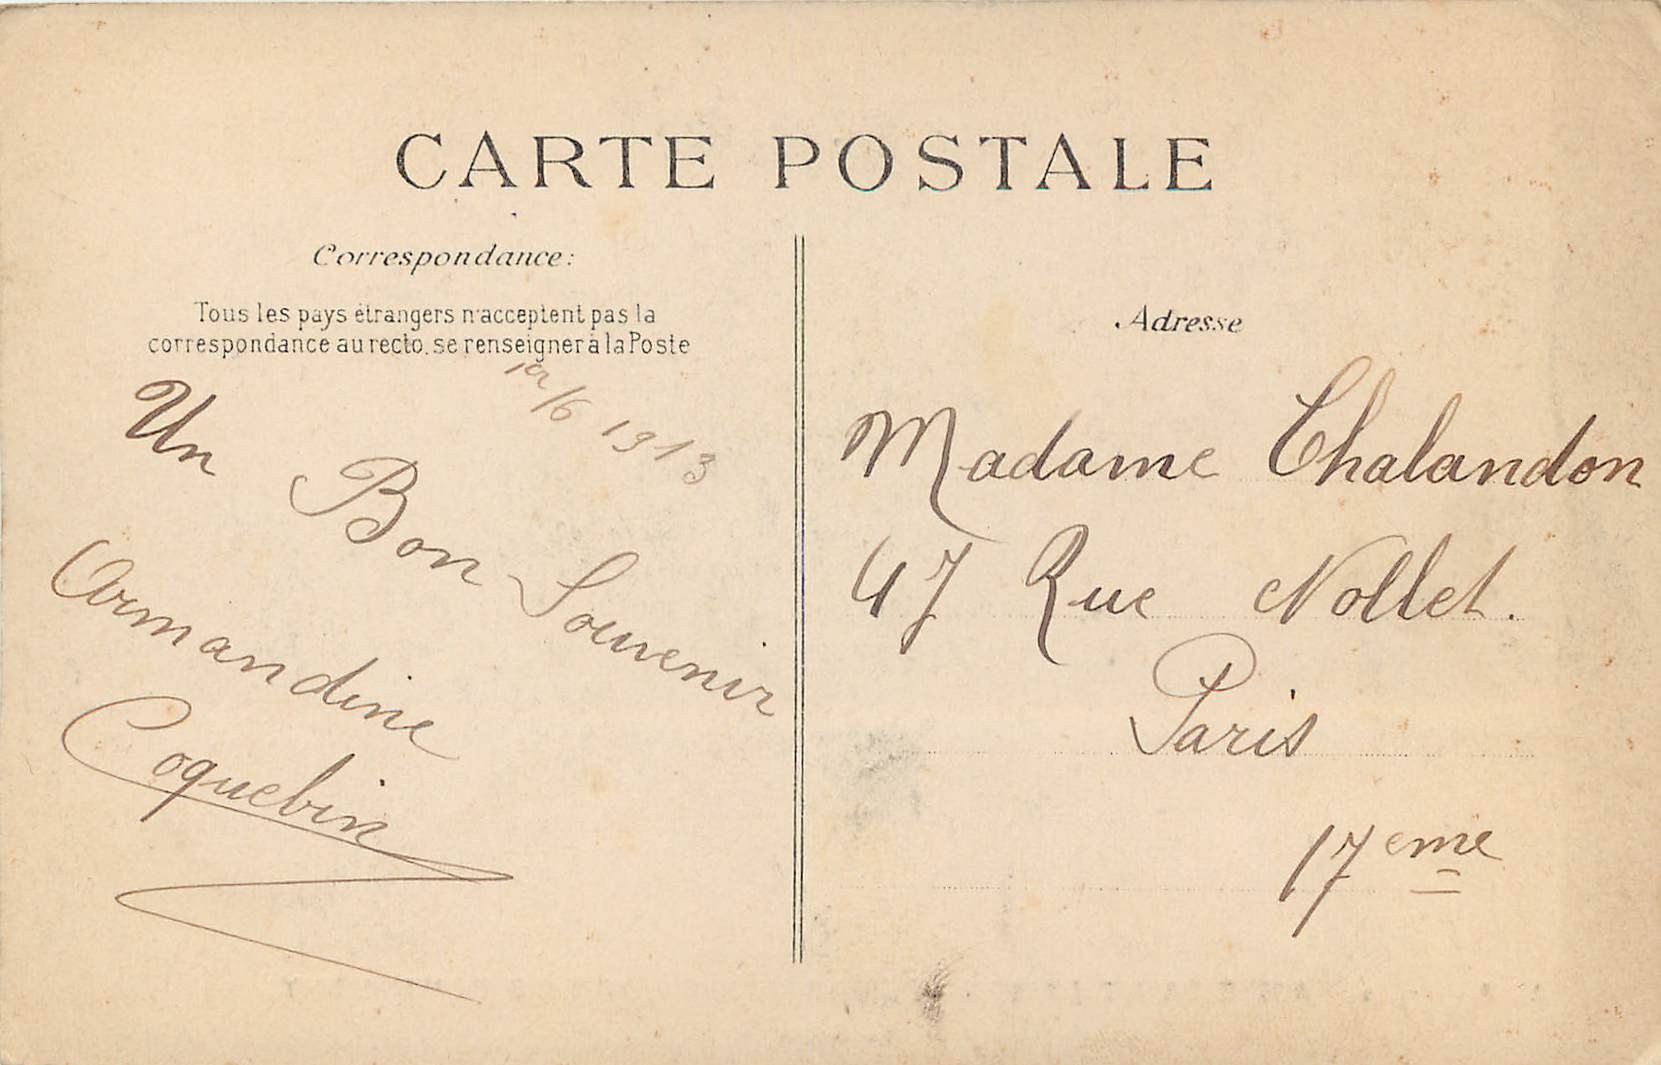 CARTE POSTALE
Correspondance:
Tous les pays étrangers n'acceptent pas la
correspondance au recto, se renseigner à la Poste
1er/6 1913
Un Bon Souvenir
Armandine
Coquebin
Adresse
Madame Chalandon
47 Rue Nollet.
Paris
17eme